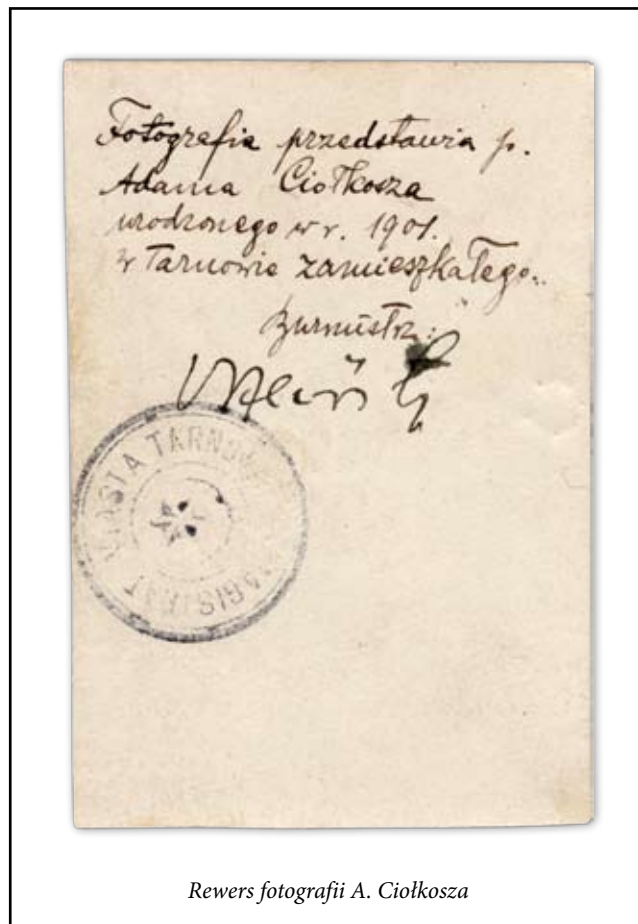 Fotografia przedstawia p.
Adama Ciołkosza
urodzonego w r. 1901.
w Tarnowie zamieszkałego.
Burmistrz:
MAGISTRAT MIASTA TARNOWA
Rewers fotografii A. Ciołkosza